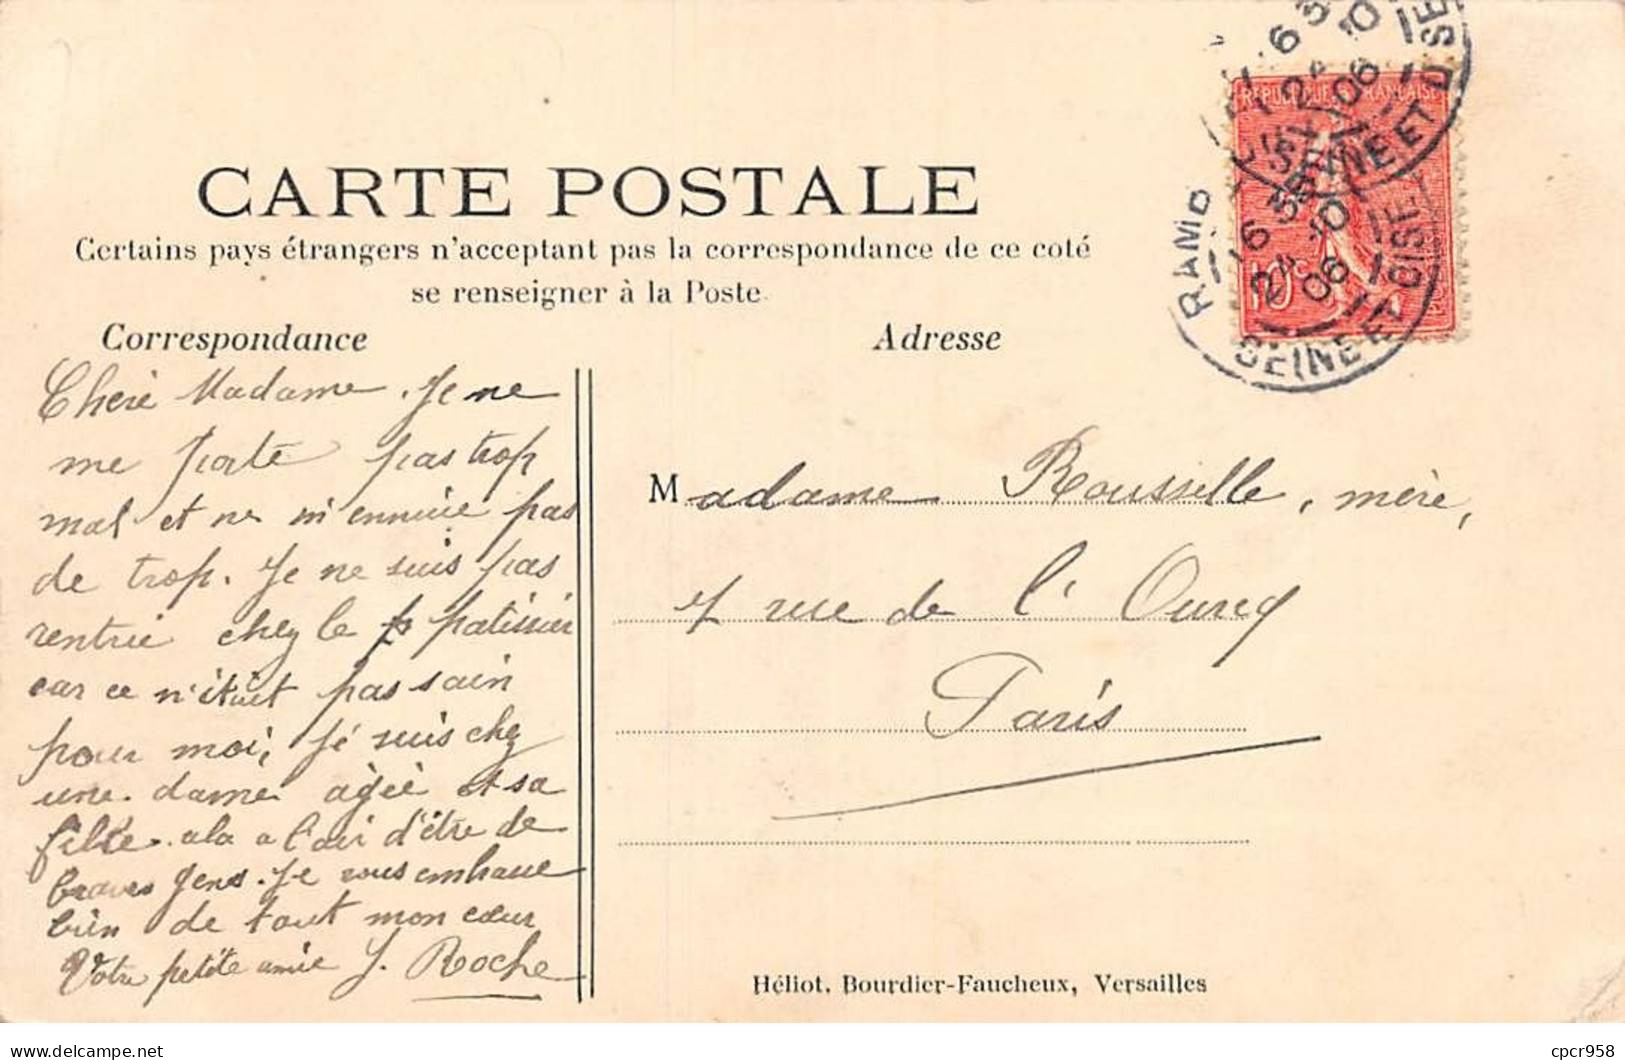 CARTE POSTALE
Certains pays étrangers n'acceptent pas la correspondance de ce coté
se renseigner à la Poste
Correspondance
Adresse
Chère Madame. Je ne
me porte pas trop
mal et ne m'ennuie pas
de trop. Je ne suis pas
rentrée chez le patissier
car ce n'était pas sain
pour moi, Je suis chez
une dame agée et sa
fille. a l'air d'être de
braves gens. Je vous embrasse
bien de tout mon cœur
Votre petite amie J. Roche
Madame Rousselle, mère,
rue de l'Ourcq
Paris
Héliot. Bourdier-Faucheux, Versailles
REPUBLIQUE FRANÇAISE
10c
SEINE ET OISE
06
SEINE ET OISE
06
delcampe.net
cpcr958